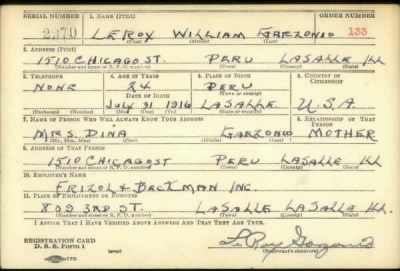 SERIAL NUMBER 1. NAME (Print) ORDER NUMBER
2370 LEROY WILLIAM GARZONIO 133
(First) (Middle) (Last)
2. ADDRESS (Print)
1510 CHICAGO ST. PERU LASALLE ILL
(Number and street or R. F. D. number) (Town) (County) (State)
3. TELEPHONE 4. AGE IN YEARS 5. PLACE OF BIRTH 6. COUNTRY OF CITIZENSHIP
NONE 24 PERU
DATE OF BIRTH (Town or county)
JULY 31 1916 LASALLE U.S.A.
(Exchange) (Number) (Mo.) (Day) (Yr.) (State or country)
7. NAME OF PERSON WHO WILL ALWAYS KNOW YOUR ADDRESS 8. RELATIONSHIP OF THAT PERSON
MRS. DINA GARZONIO MOTHER
(Mr., Mrs., Miss) (First) (Middle) (Last)
9. ADDRESS OF THAT PERSON
1510 CHICAGO ST PERU LASALLE ILL
(Number and street or R. F. D. number) (Town) (County) (State)
10. EMPLOYER'S NAME
FRIZOL & BECKMAN INC.
11. PLACE OF EMPLOYMENT OR BUSINESS
809 3RD ST. LASALLE LASALLE ILL.
(Number and street or R. F. D. number) (Town) (County) (State)
I AFFIRM THAT I HAVE VERIFIED ABOVE ANSWERS AND THAT THEY ARE TRUE.
REGISTRATION CARD
D. S. S. Form 1 (over) (Registrant's signature)